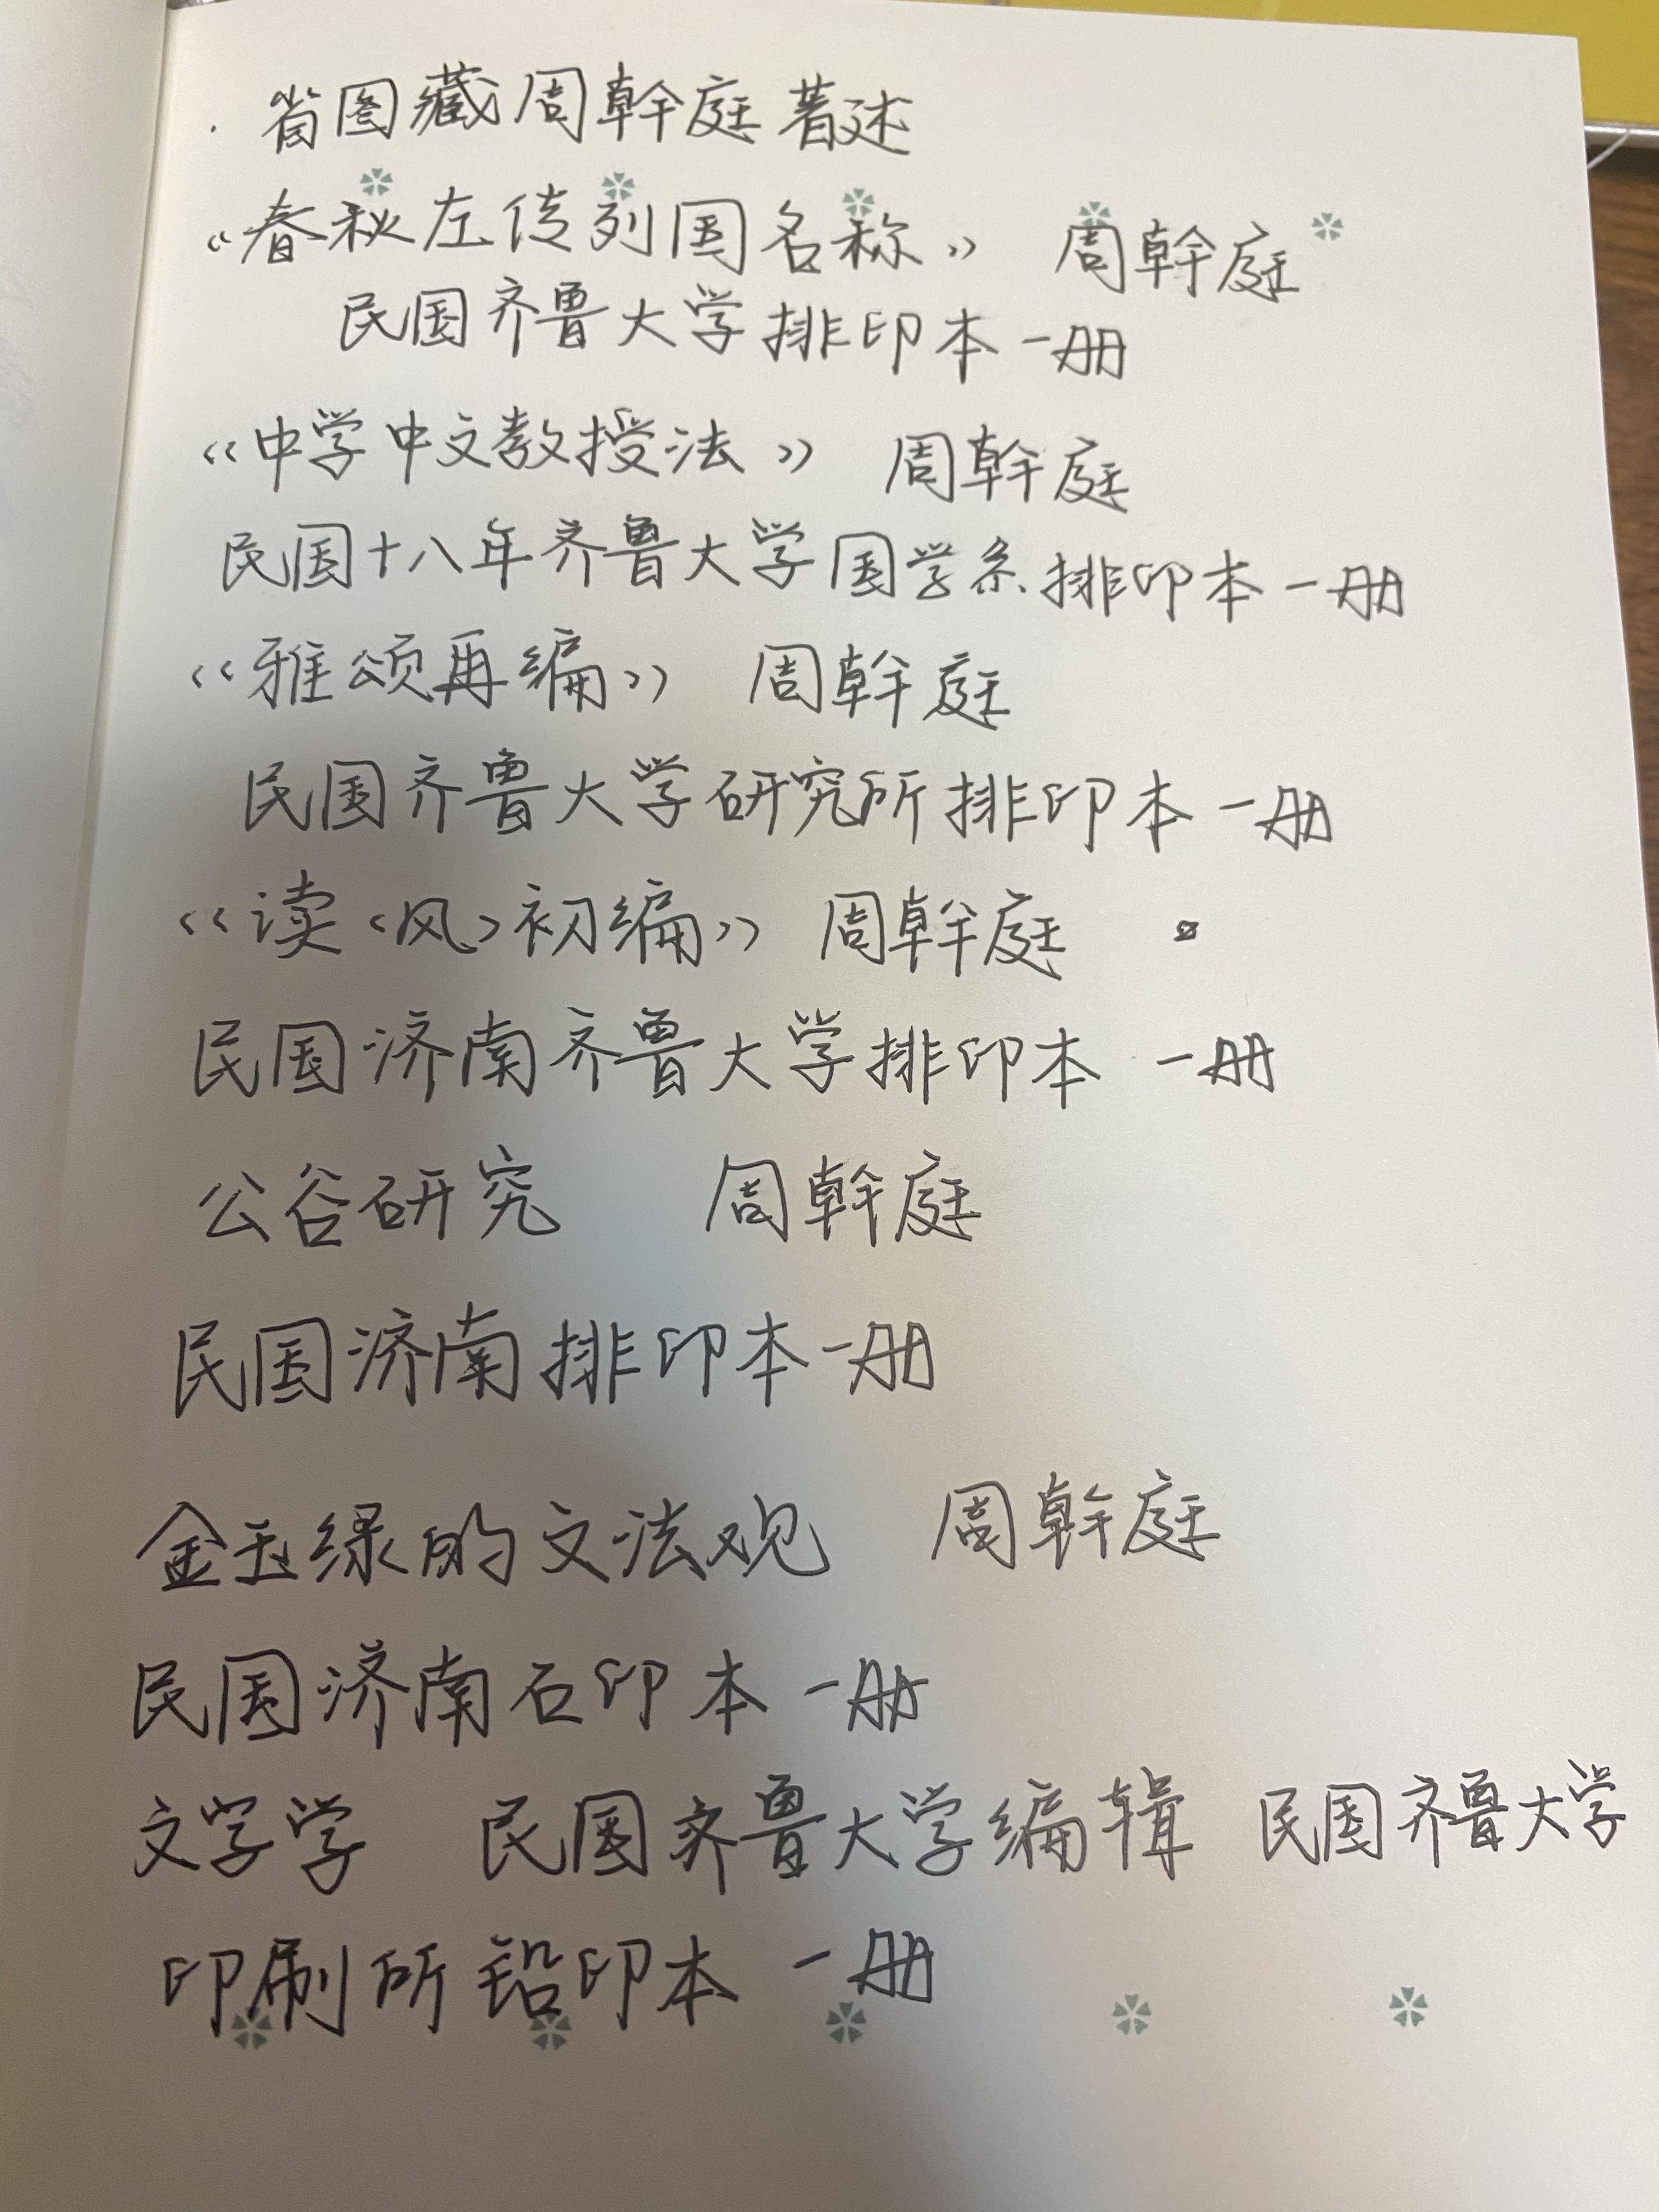 省图藏周幹庭著述
《春秋左传列国名称》 周幹庭
民国齐鲁大学排印本一册
《中学中文教授法》 周幹庭
民国十八年齐鲁大学国学系排印本一册
《雅颂再编》 周幹庭
民国齐鲁大学研究所排印本一册
《读〈风〉初编》 周幹庭
民国济南齐鲁大学排印本 一册
公谷研究 周幹庭
民国济南排印本一册
金玉缘的文法观 周幹庭
民国济南石印本一册
文字学 民国齐鲁大学编辑 民国齐鲁大学
印刷所铅印本 一册